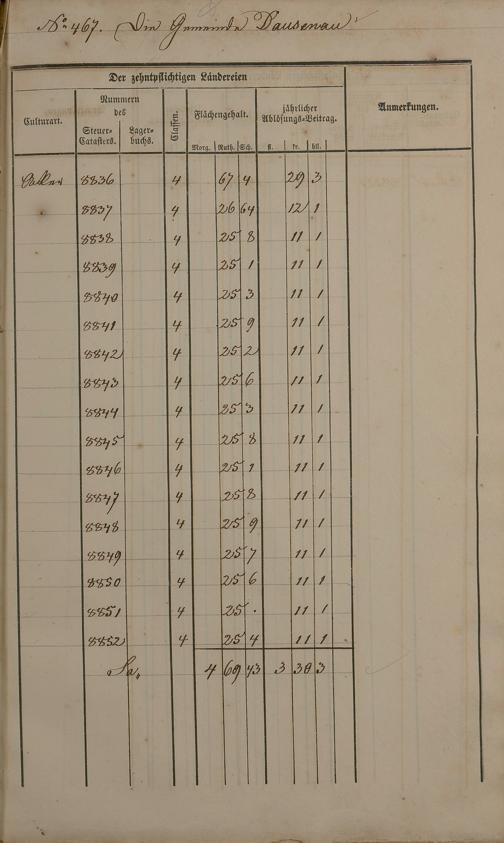 No 467. Die Gemeinde Dausenau
Der zehntpflichtigen Ländereien
Culturart.
Nummern des
Steuer-Catasters.
Lager-buchs.
Classen.
Flächengehalt.
Morg. Ruth. Sch.
jährlicher Ablösungs-Beitrag.
fl. kr. hll.
Anmerkungen.
Acker 8836 4 67 4 29 3
" 8837 4 26 64 12 1
8838 4 25 8 11 1
8839 4 25 1 11 1
8840 4 25 3 11 1
8841 4 25 9 11 1
8842 4 25 2 11 1
8843 4 25 6 11 1
8844 4 25 3 11 1
8845 4 25 8 11 1
8846 4 25 1 11 1
8847 4 25 8 11 1
8848 4 25 9 11 1
8849 4 25 7 11 1
8850 4 25 6 11 1
8851 4 25 . 11 1
8852 4 25 4 11 1
Sa. 4 69 43 3 30 3